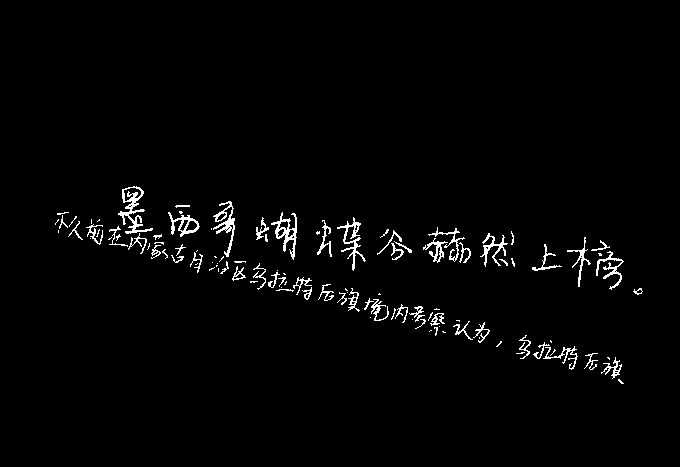 墨西哥蝴蝶谷赫然上榜。
不久前在内蒙古自治区乌拉特后旗境内考察认为，乌拉特后旗